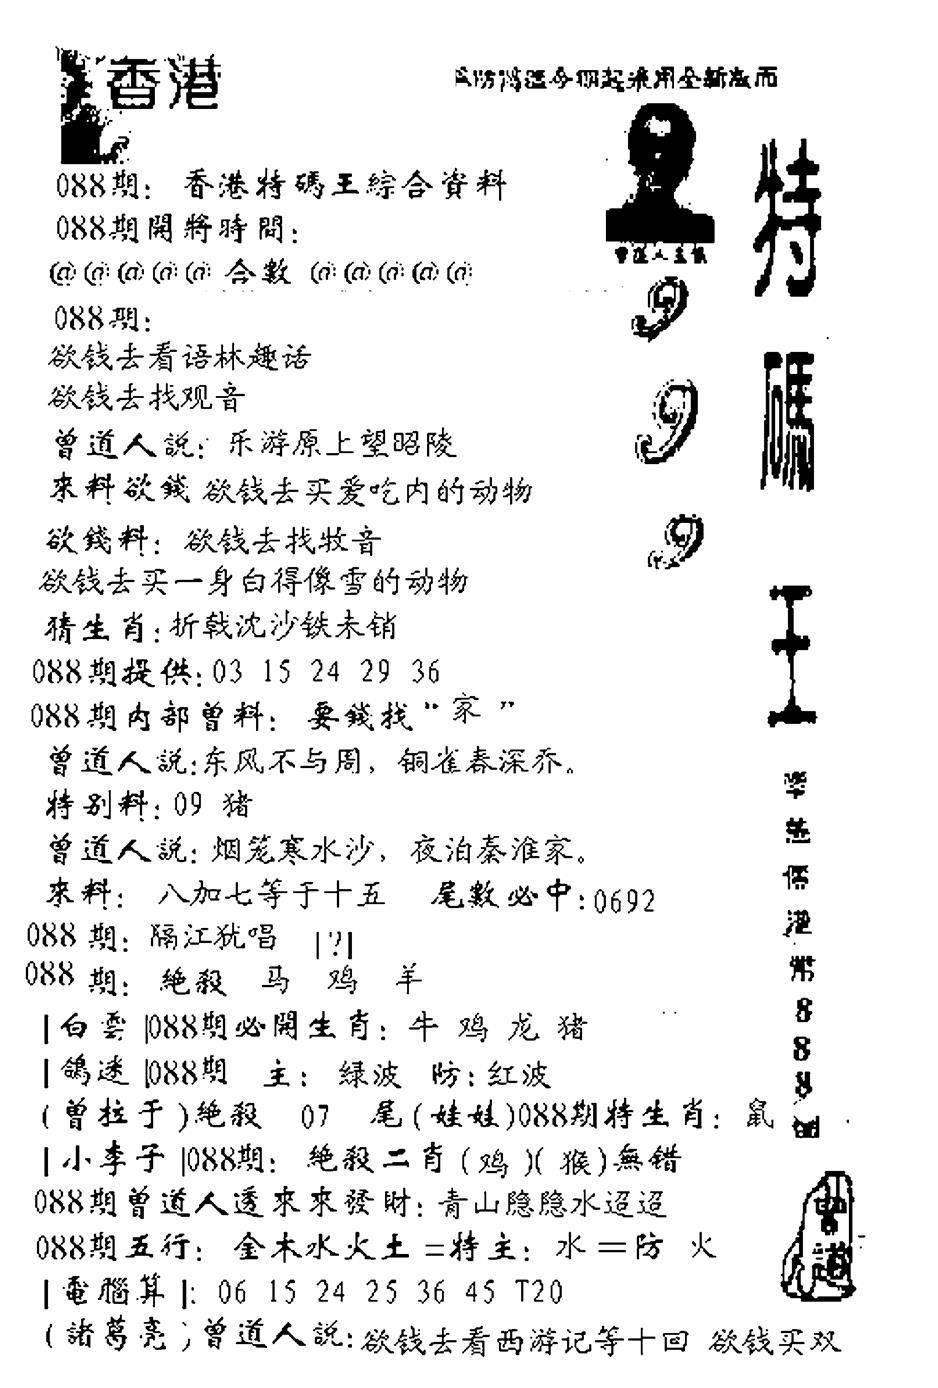 香港
088期：香港特碼王綜合資料
088期開將時間：
@@@@@ 合數 @@@@@
088期：
欲钱去看语林趣话
欲钱去找观音
曾道人説：乐游原上望昭陵
來料欲錢 欲钱去买爱吃内的动物
欲錢料：欲钱去找牧音
欲钱去买一身白得像雪的动物
猜生肖：折戟沈沙铁未销
088期提供：03 15 24 29 36
088期内部曾料：要錢找“家”
曾道人説：东风不与周，铜雀春深乔。
特别料：09 猪
曾道人説：烟笼寒水沙，夜泊秦淮家。
來料：八加七等于十五 尾數必中：0692
088期：隔江犹唱 |?|
088期：絶殺 马 鸡 羊
|白雲|088期必開生肖：牛 鸡 龙 猪
|鴿迷|088期 主：绿波 防：红波
(曾拉于)絶殺 07 尾(娃娃)088期特生肖：鼠
|小李子|088期：絶殺二肖(鸡)(猴)無错
088期曾道人透來來發財：青山隐隐水迢迢
088期五行：金木水火土=特主：水=防 火
|電腦算|：06 15 24 25 36 45 T20
(諸葛亮)曾道人説：欲钱去看西游记等十回 欲钱买双
特碼王
999
港幣888
曾道